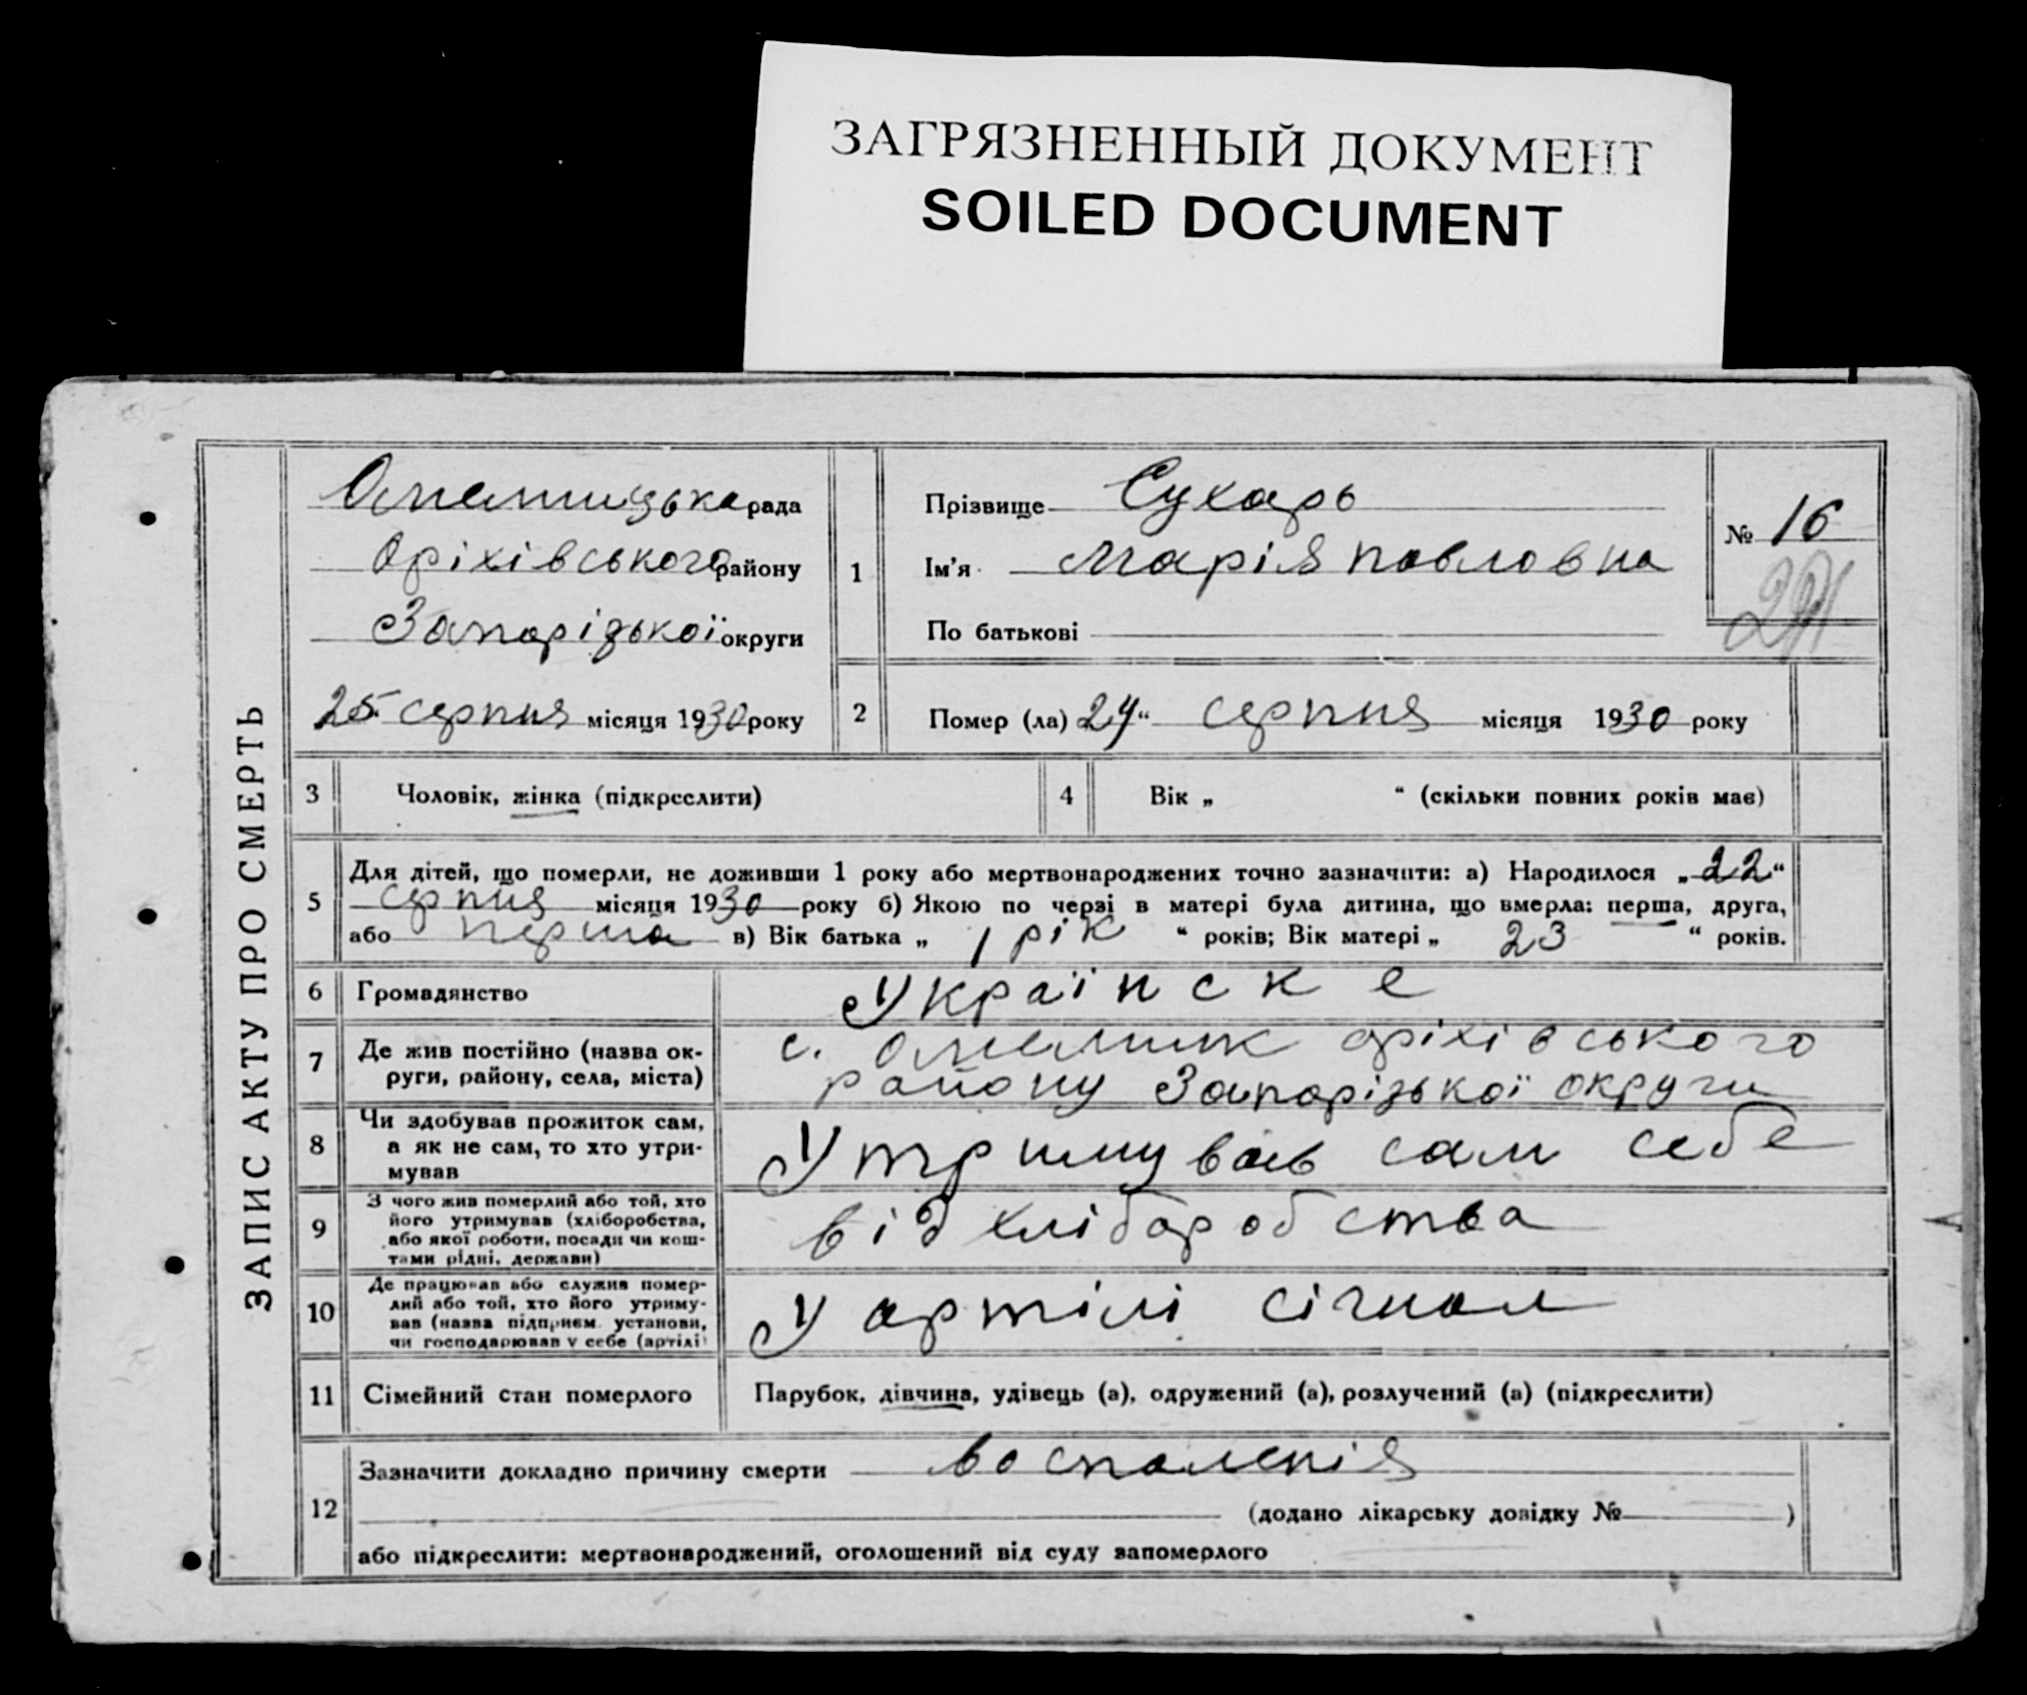 ЗАГРЯЗНЕННЫЙ ДОКУМЕНТ
SOILED DOCUMENT
ЗАПИС АКТУ ПРО СМЕРТЬ
Омелницька рада
Оріхівського району
Запорізької округи
25 серпня місяця 1930 року
1
Прізвище Сухарь
Ім'я Марія павловна
По батькові
№ 16
2
Помер (ла) 24“ серпня місяця 1930 року
3 Чоловік, жінка (підкреслити)
4 Вік „ “ (скільки повних років має)
5 Для дітей, що померли, не доживши 1 року або мертвонароджених точно зазначити: а) Народилося „22“
серпня місяця 1930 року б) Якою по черзі в матері була дитина, що вмерла: перша, друга,
або перша в) Вік батька „ 1 рік “ років; Вік матері „ 23 “ років.
6 Громадянство Українске
7 Де жив постійно (назва ок-
руги, району, села, міста)
с. Омелник оріхівського
району Запорізької округи
8 Чи здобував прожиток сам,
а як не сам, то хто утри-
мував
Утримував сам себе
9 З чого жив померлий або той, хто
його утримував (хліборобства,
або якої роботи, посади чи кош-
тами рідні, держави)
від хліборобства
10 Де працював або служив помер-
лий або той, хто його утриму-
вав (назва підприєм. установи,
чи господарював у себе (артілі)
У артілі сігнал
11 Сімейний стан померлого Парубок, дівчина, удівець (а), одружений (а), розлучений (а) (підкреслити)
12 Зазначити докладно причину смерти воспаленія
(додано лікарську довідку № )
або підкреслити: мертвонароджений, оголошений від суду запомерлого